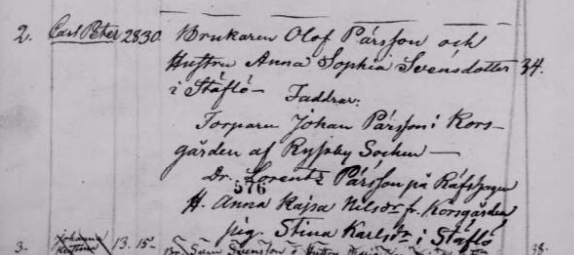 2. Carl Peter 28 30. Brukaren Olof Pärsson och
Hustru Anna Sophia Svensdotter 34.
i Ståflö – Faddrar:
Torparen Johan Pärsson i Kors-
gården af Ryssby Socken —
Dr. Lorentz Pärsson på
576
H. Anna Kajsa Nilsdr fr. Korsgården
pig. Stina Karlsdr i Ståflö
3. 13. 15. Sven Svensson o Hustru 38.